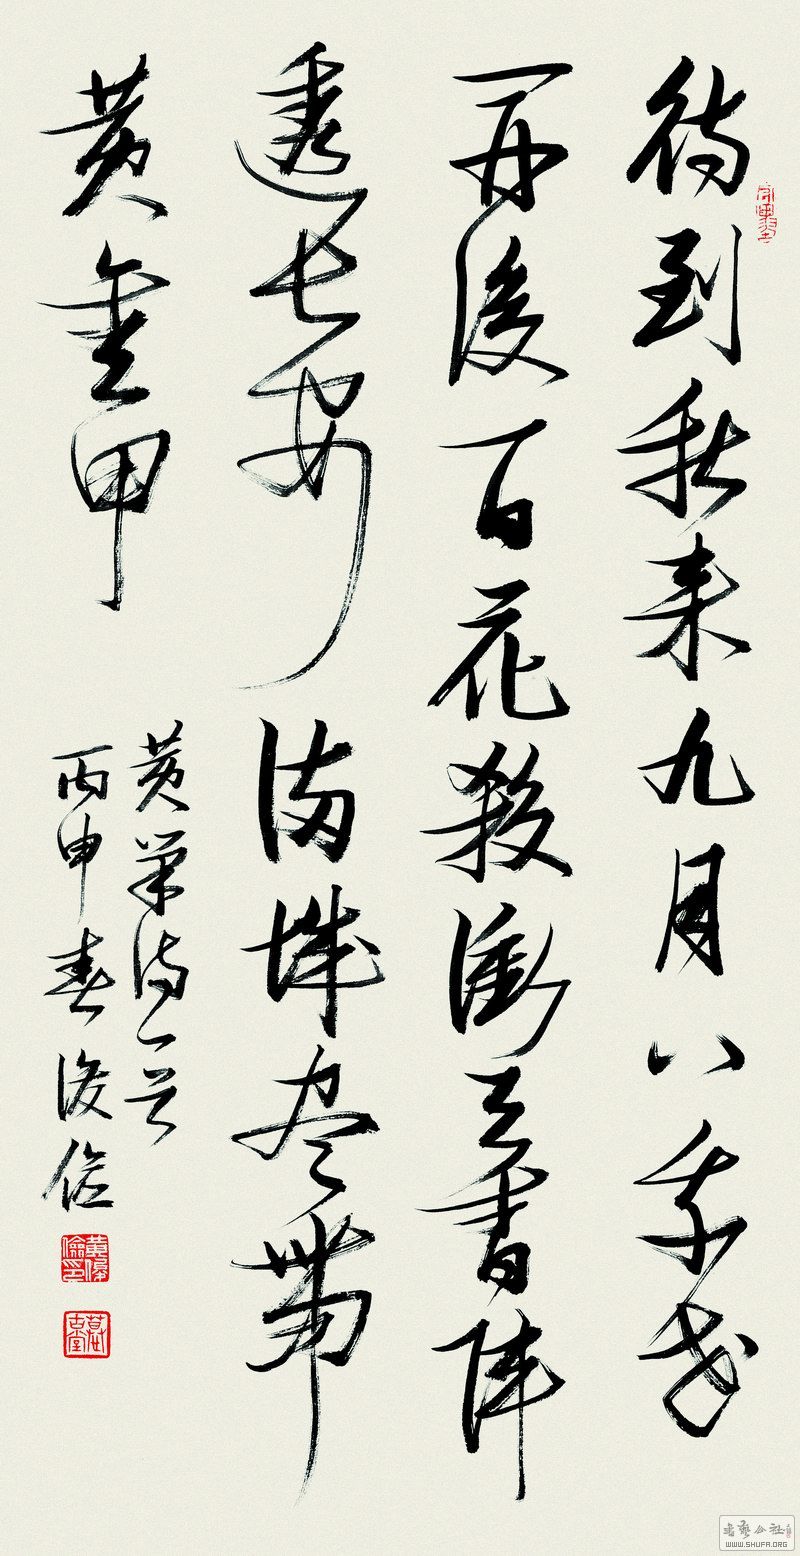 待到秋来九月八我花
开後百花殺衝天香陣
透长安满城尽帶
黄金甲
黄巢诗一首
丙申春俊俭
黄俊儉印
书艺公社
WWW.SHUFA.ORG